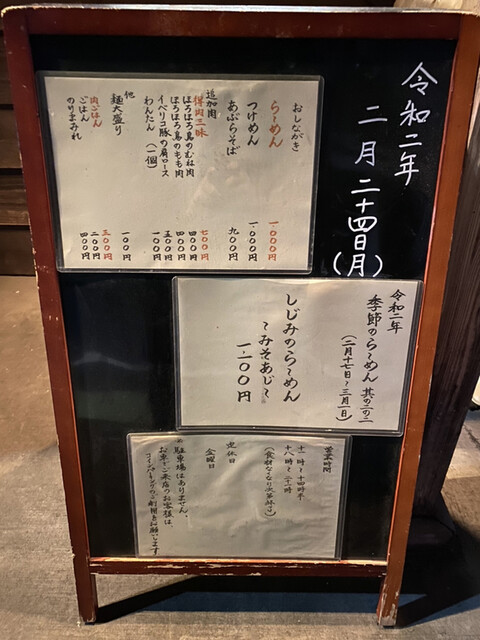 令和二年
二月二十四日(月)
おしながき
らーめん 一、〇〇〇円
つけめん 一、〇〇〇円
あぶらそば 九〇〇円
追加肉
得肉三昧 七〇〇円
ほろほろ鳥のむね肉 四〇〇円
ほろほろ鳥のもも肉 四〇〇円
イベリコ豚の肩ロース 五〇〇円
わんたん(一個) 一〇〇円
他
麺大盛り 一〇〇円
肉ごはん 三〇〇円
ごはん 二〇〇円
のりまみれ 四〇〇円
令和二年
季節のらーめん 其の二の二
(二月十七日〜三月一日)
しじみのらーめん
〜みそあじ〜
一、一〇〇円
営業時間
十一時〜十四時半
十八時〜二十一時
(食材なくなり次第終了)
定休日
金曜日
駐車場はありません。
お車でご来店のお客様は、
コインパーキングのご利用をお願いします